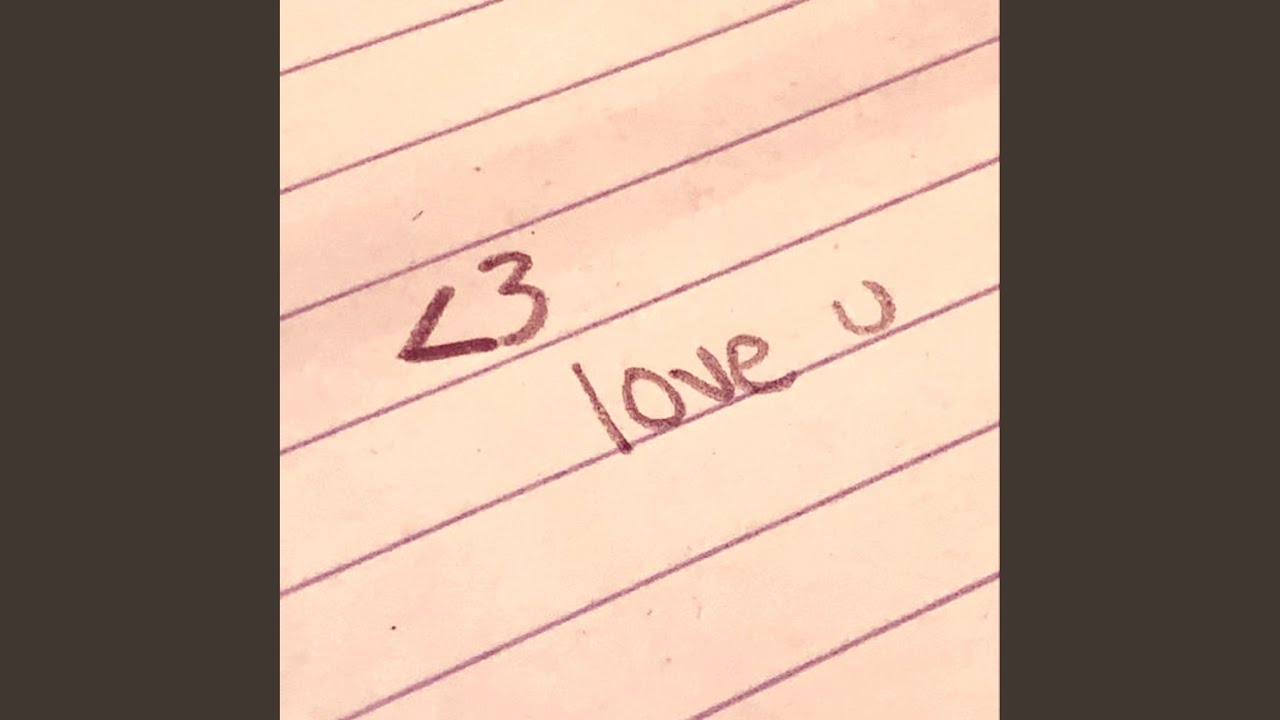 <3
love u